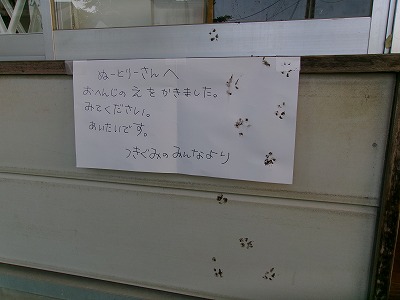 ぬーとりーさんへ
おへんじのえをかきました。
みてください。
あいたいです。
つきぐみのみんなより